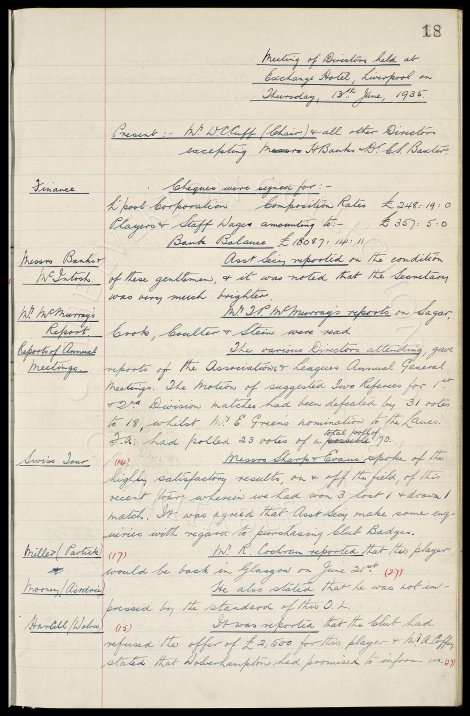 18
Meeting of Directors held at
Exchange Hotel, Liverpool on
Thursday, 13th June, 1935.
Present :- Mr. W. C. Cuff (Chair) & all other Directors
excepting Messrs H Banks & Dr. C. S. Baxter
Finance
Cheques were signed for :-
L'pool Corporation Composition Rates £248: 19: 0
Players & Staff Wages amounting to:- £357: 5: 0
Bank Balance £18087: 14: 11
Messrs Banks & McIntosh
Asst Secy reported on the condition
of these gentlemen, & it was noted that the Secretary
was very much brighter.
Mr. McMurray's Report
Mr. T. P. McMurray's reports on Sagar,
Cook, Coulter & Stein were read
Reports of Annual Meetings
The various Directors attending, gave
reports of the Associations & Leagues Annual General
Meetings. The motion of suggested Two Referees for 1st
& 2nd Division matches had been defeated by 31 votes
to 18, whilst Mr. E Greens nomination to the Lancs.
F.A. had polled 23 votes of a possible total poll of 70.
Swiss Tour
(14) Messrs Sharp & Evans spoke of the
highly satisfactory results, on & off the field, of this
recent tour wherein we had won 3 lost 1 & drawn 1
match. It was agreed that Asst Secy make some enq-
uiries with regard to purchasing Club Badges.
Miller (Partick)
(17) Mr. R. Cochran reported that this player
would be back in Glasgow on June 21st
Mooney (Airdrie)
(27) He also stated that he was not im-
pressed by the standard of this O.L.
Hartill (Wolves)
(15) It was reported that the Club had
refused the offer of £2,500 for this player & Mr. A. Coffey
stated that Wolverhampton had promised to inform us.